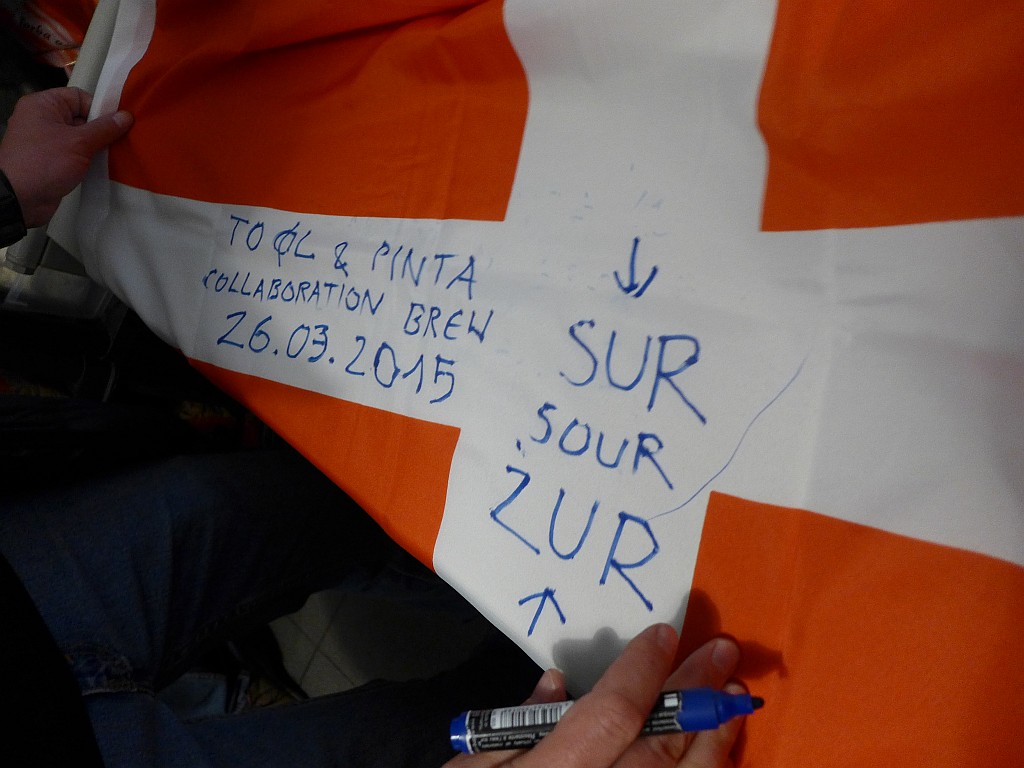 TO ØL & PINTA
COLLABORATION BREW
26.03.2015
↓
SUR
SOUR
ŻUR
↑